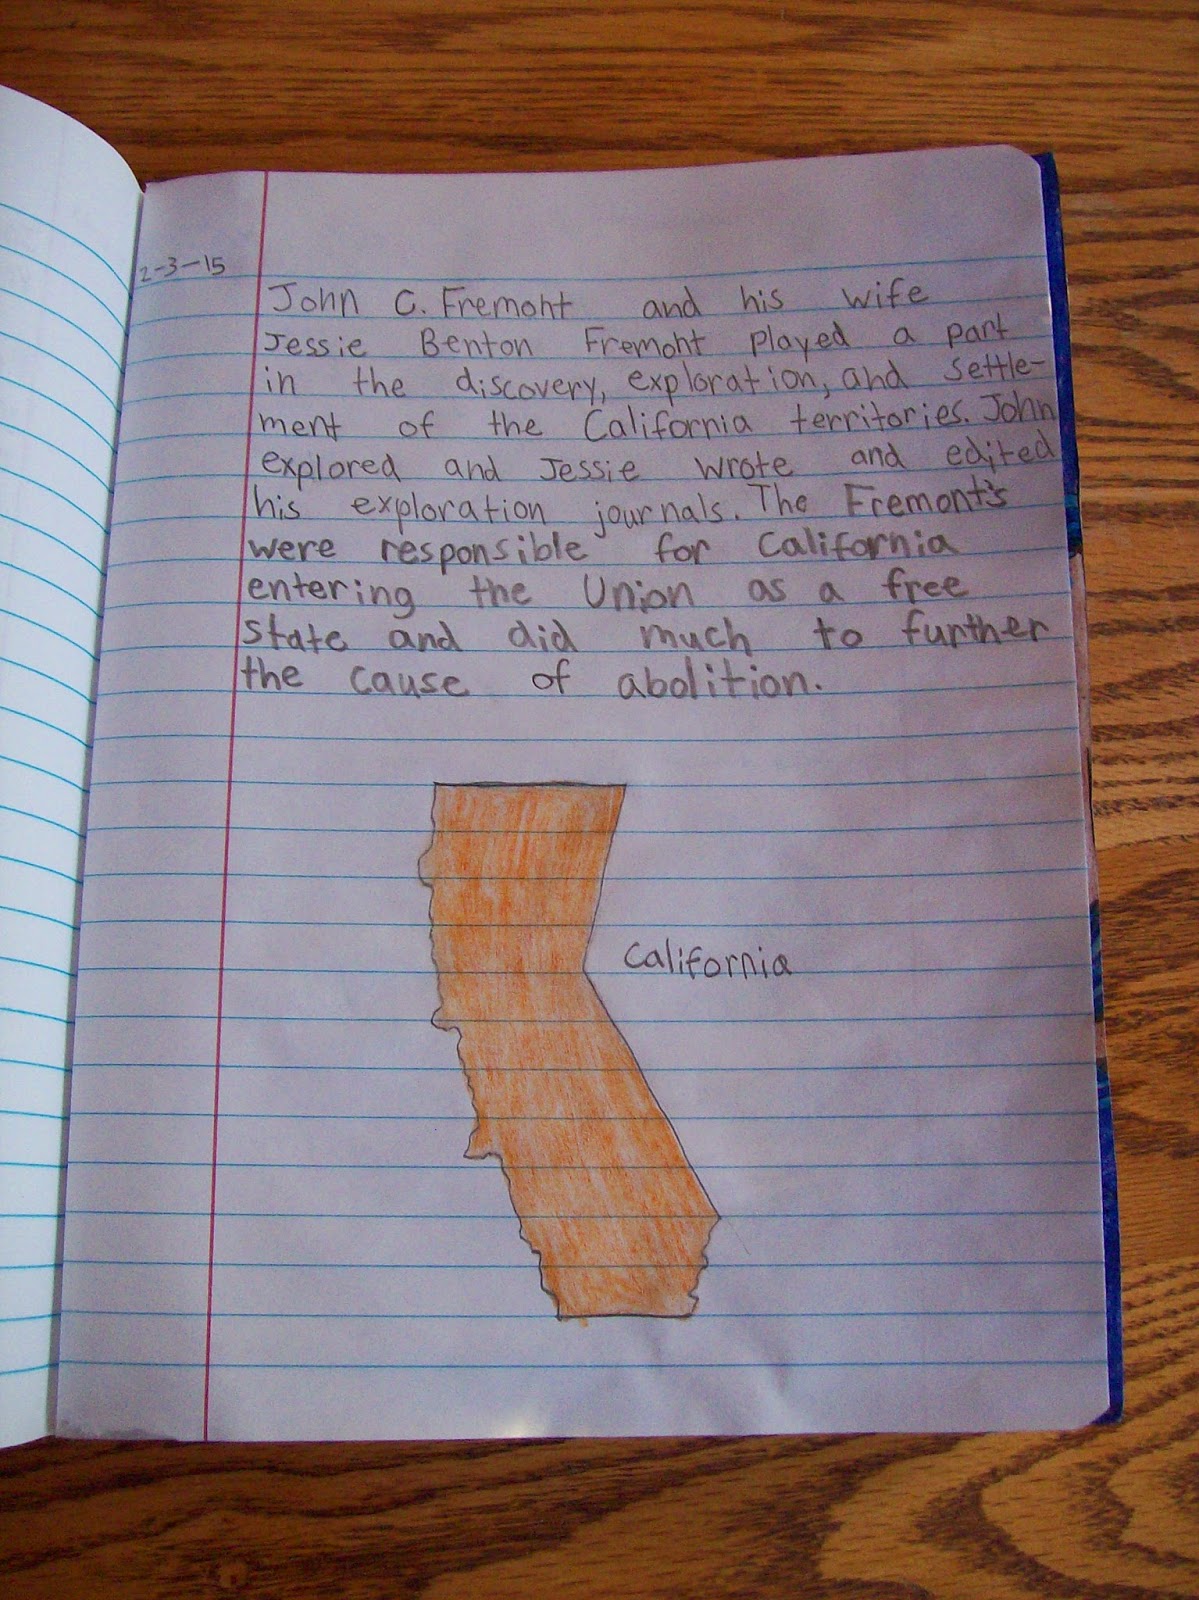 2-3-15
John C. Fremont and his wife
Jessie Benton Fremont played a part
in the discovery, exploration, and settle-
ment of the California territories. John
explored and Jessie wrote and edited
his exploration journals. The Fremont's
were responsible for California
entering the Union as a free
state and did much to further
the cause of abolition.
California